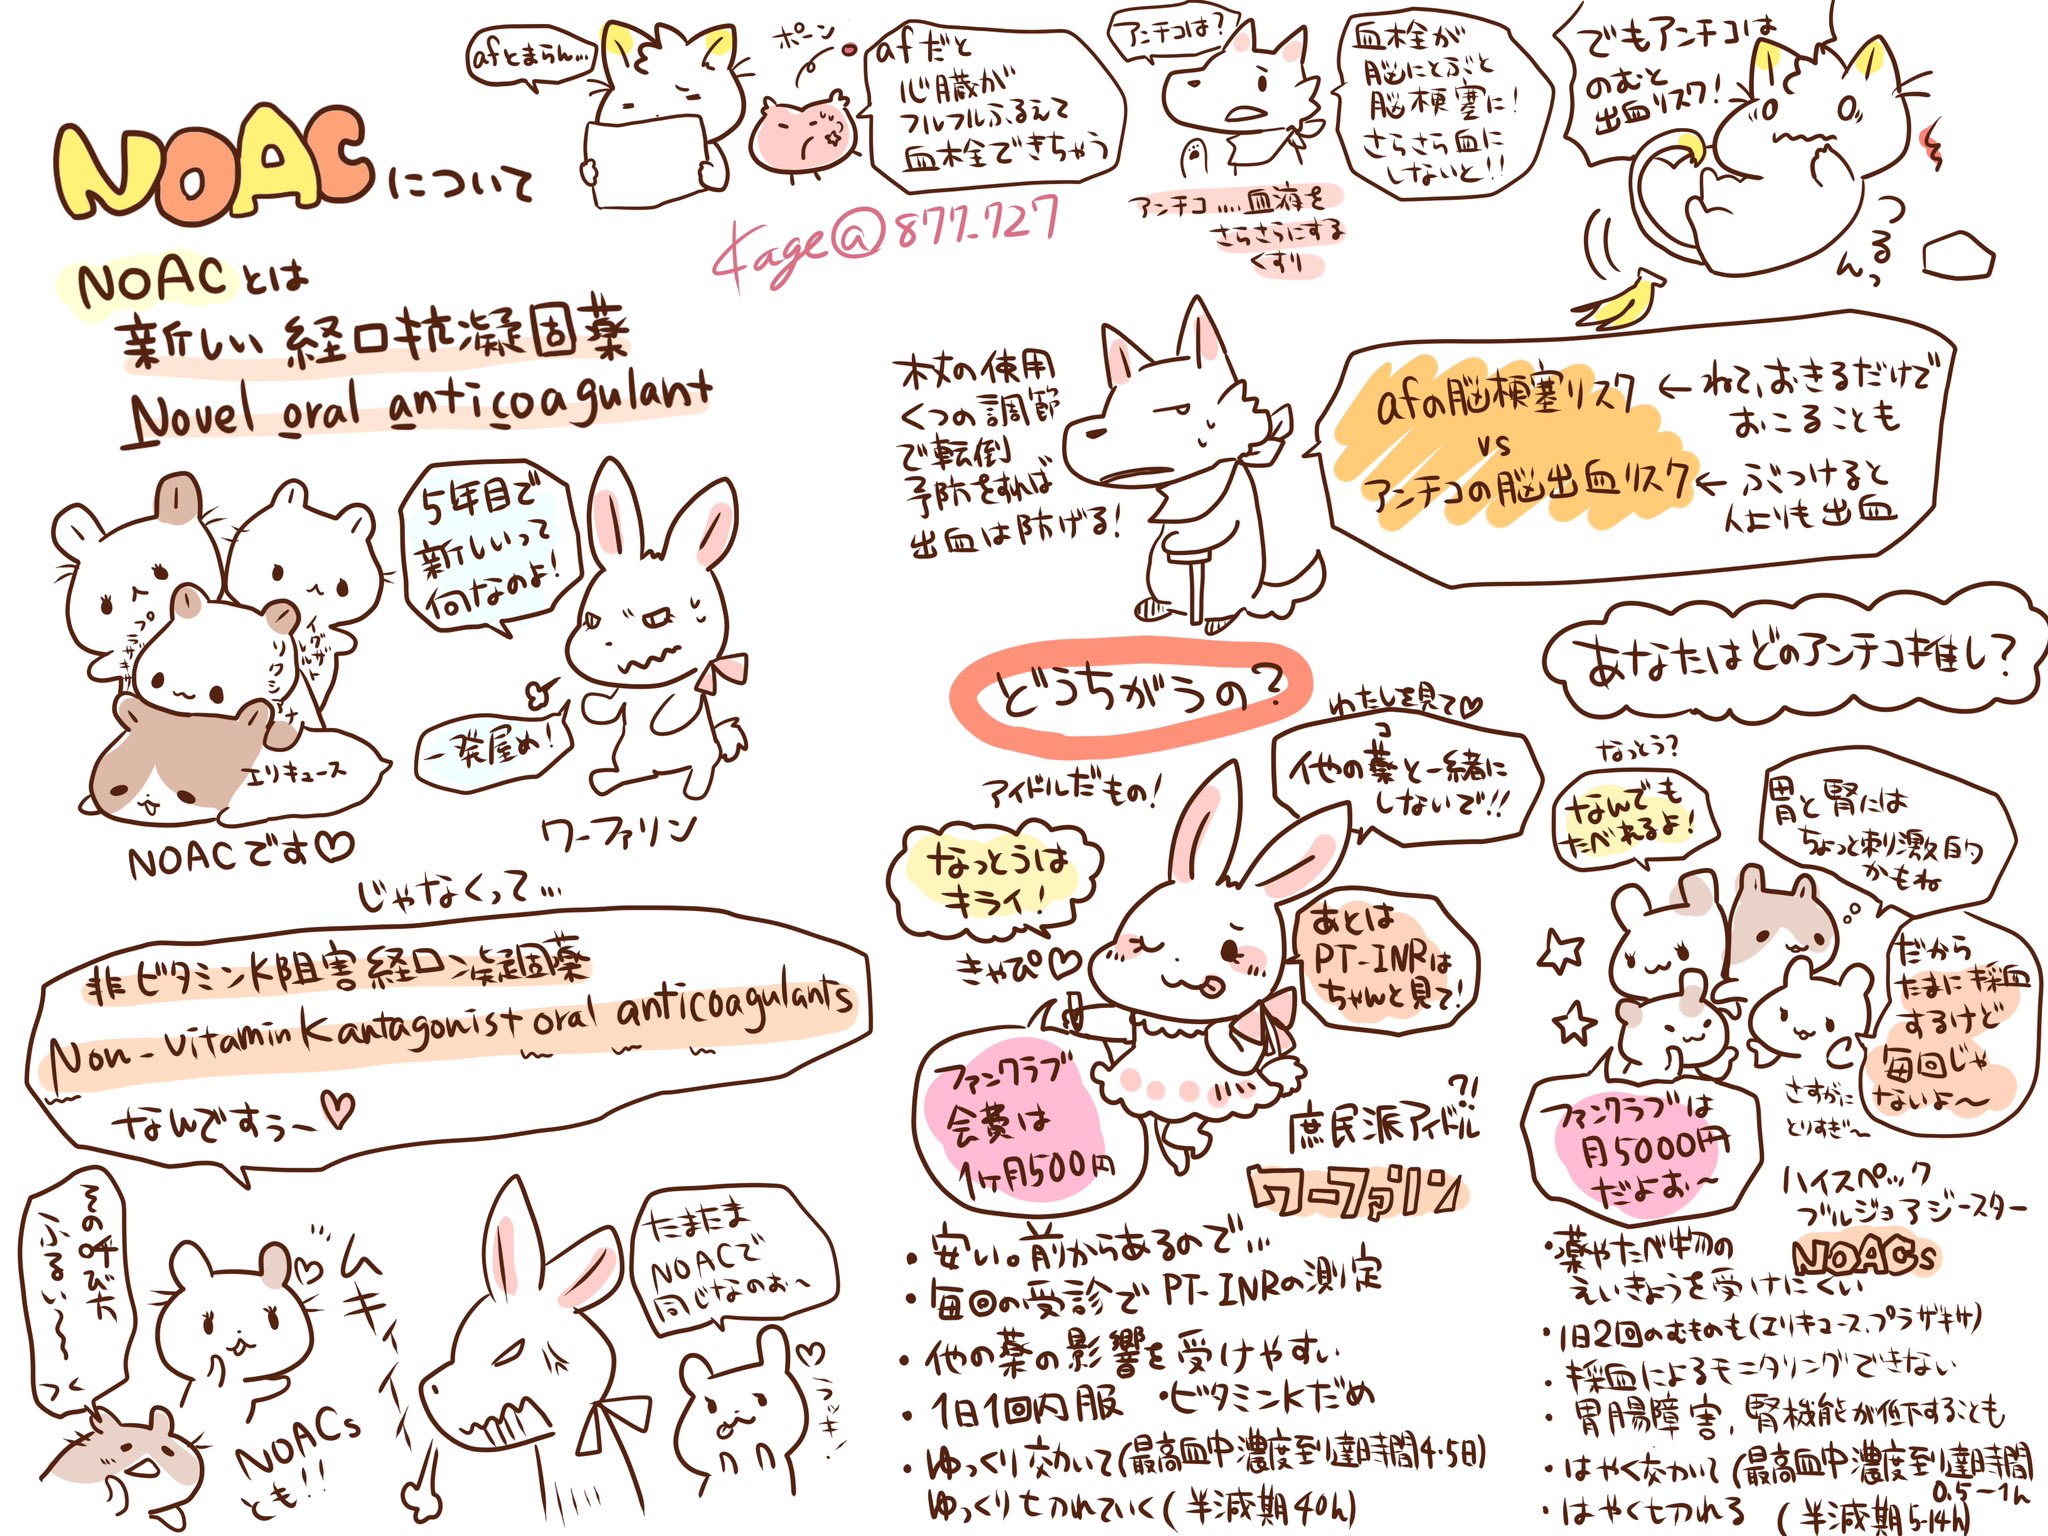 NOACについて
afとまらん…
ポーン
afだと
心臓が
フルフルふるえて
血栓できちゃう
アンチコは?
血栓が
脳にとぶと
脳梗塞に!
さらさら血に
しないと!!
アンチコ....血液を
さらさらにする
くすり
でもアンチコは
のむと
出血リスク!
つるんっ
Kage@877_727
NOACとは
新しい経口抗凝固薬
Novel oral anticoagulant
プラザキサ
イグザレルト
リクシアナ
エリキュース
NOACです♡
5年目で
新しいって
何なのよ!
一発屋め!
ワーファリン
じゃなくって…
非ビタミンK阻害経口凝固薬
Non-vitamin K antagonist oral anticoagulants
なんですぅー♡
その呼び方
ふるい〜〜
NOACs
とも!!
ムキィィィィ
たまたま
NOACで
同じなのぉ〜
杖の使用
くつの調節
で転倒
予防をすれば
出血は防げる!
afの脳梗塞リスク ← ねて、おきるだけで
おこることも
vs
アンチコの脳出血リスク ← ぶつけると
人よりも出血
どうちがうの?
あなたはどのアンチコ推し?
アイドルだもの!
なっとうは
キライ!
きゃぴ♡
わたしを見て♡
他の薬と一緒に
コ
しないで!!
あとは
PT-INRは
ちゃんと見て!
ファンクラブ
会費は
1ヶ月500円
?!
庶民派アイドル
ワーファリン
・安い。前からあるので…
・毎回の受診でPT-INRの測定
・他の薬の影響を受けやすい
・1日1回内服 ・ビタミンKだめ
・ゆっくり効いて(最高血中濃度到達時間4.5日)
ゆっくり切れていく(半減期40h)
なっとう?
なんでも
たべれるよ!
胃と腎には
ちょっと刺激的
かもね
だから
たまに採血
するけど
毎回じゃ
ないよ〜
さすがに
とりすぎ〜
ファンクラブは
月5000円
だよぉ〜
ハイスペック
ブルジョアジースター
NOACs
・薬やたべ物の
えいきょうを受けにくい
・1日2回のむものも(エリキュース、プラザキサ)
・採血によるモニタリングできない
・胃腸障害、腎機能が低下することも
・はやく効いて(最高血中濃度到達時間
0.5-1h
・はやく切れる (半減期5-14h)